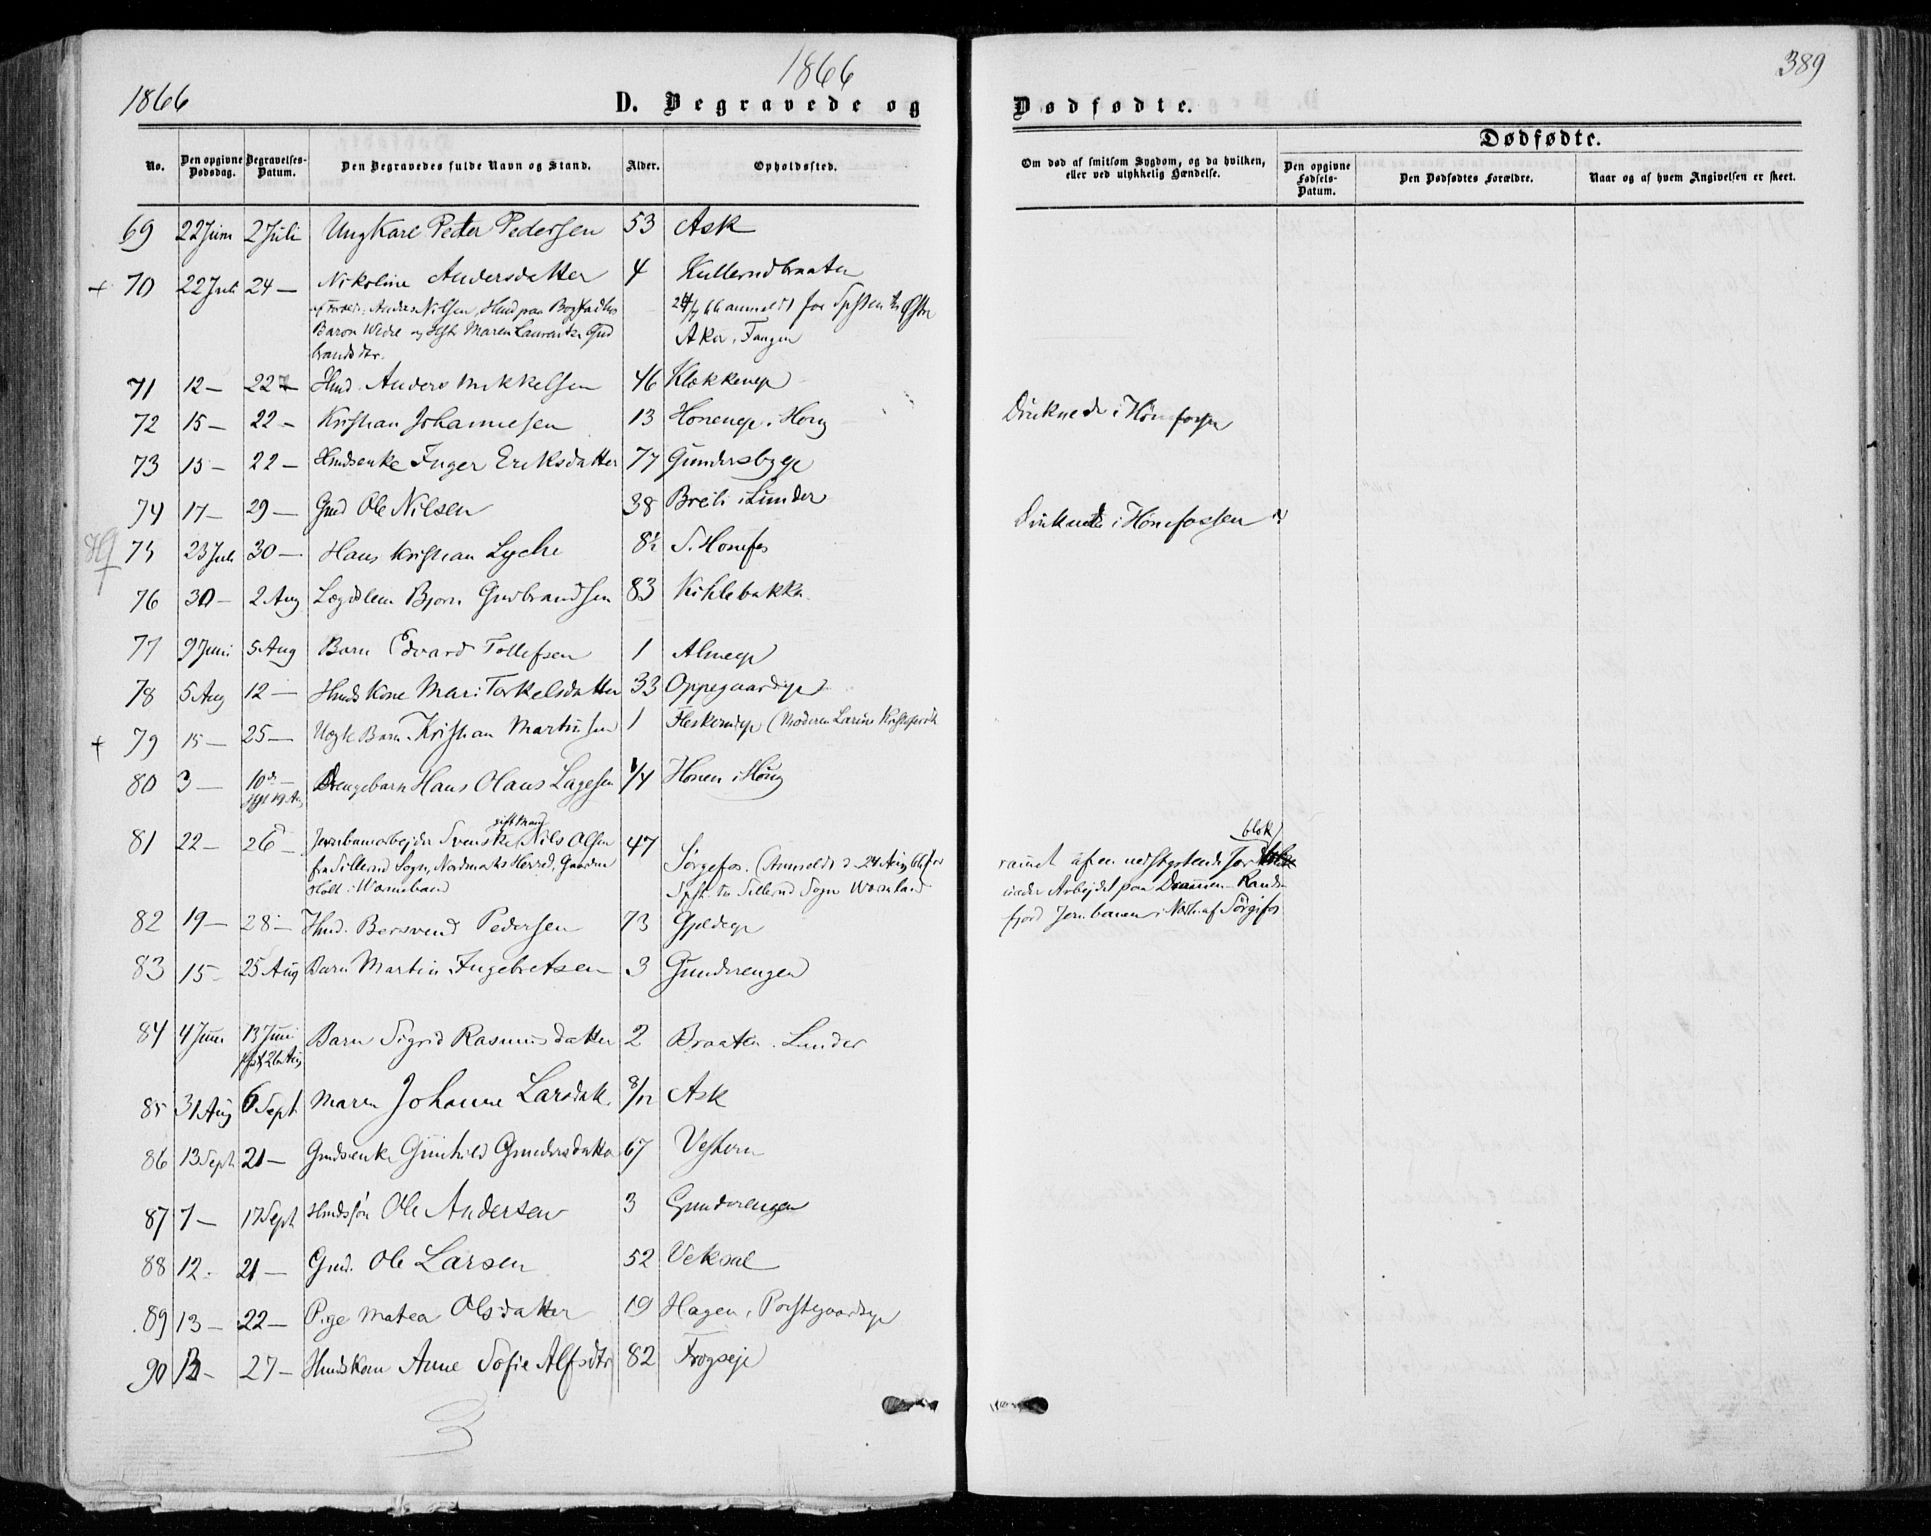 1866
1866
389
D. Begravede og
Dødfødte.
Dødfødte.
No.
Den opgivne Dødsdag.
Begravelses-Datum.
Den Begravedes fulde Navn og Stand.
Alder.
Opholdssted.
Om død af smitsom Sygdom, og da hvilken, eller ved ulykkelig Hændelse.
Den opgivne Fødsels-Datum.
Den Dødfødtes Forældre.
Naar og af hvem Angivelsen er skeet.
69 22 Juni 2 Juli Ungkarl Peter Pedersen 53 Ask
+ 70 22 Juli 24 — Nikoline Andersdatter 4 Kullerudbraaten
Anders Nilsen, Hmd paa Bogstad
Baron Wedel og Maren Gud
brandsdtr.
Aker
71 12 — 22 — Hmd. Anders Mikkelsen 46 Klokkereje
72 15 — 22 — Kristian Johannesen 13 Honeneje i Hong Druknede i Hønefossen
73 15 — 22 — Hmdsenke Inger Eriksdatter 77 Gundersbyeje
74 17 — 29 — Gmd Ole Nilsen 38 Breili i Lunder Druknede i Hønefossen
75 23 Juli 30 — Hans Kristian Lyche 8½ S. Honefos
76 30 — 2 Aug Lægdslem Bjorn Gudbrandsen 83 Kihlebakka
77 9 Juni 5 Aug Barn Edvard Tollefsen 1 Almeje
78 5 Aug 12 — Hmds Kone Mari Torkelsdatter 33 Oppegaardseje
+ 79 15 — 25 — Uægte Barn Kristian Martinsen 1 (Moderen Larine
80 3 — 10 — Drengebarn Hans Olaus Lagesen ¼ Honen i Hong
19 Aug
81 22 — 26 Jernbanearbejder Svenske gift Mand Nils Olsen 47
fra Sillerud Sogn, Nordmarks Herred, Gaarden
Holt i Wermeland
Sørgefos. (Anmeldt d. 24 Aug 66 for
Spst. til Sillerud Sogn Wermland
ramt af en nedstyrtende Jordblok
under Arbejdet paa Drammen-Rands-
fjord Jernbanen i Nærh. af Sørgefos
82 19 — 28 — Hmd. Bersvend Pedersen 73 Gjeldeje
83 15 — 25 Aug Barn Martin Ingebretsen 3 Gunderengen
84 4 Juni 13 Juni Barn Sigrid Rasmusdatter 2 Braaten i Lunder
26 Aug
85 31 Aug 6 Sept. Maren Johanne Larsdatt. 8/12 Ask
86 13 Sept 21 — Gmdsenke Gunhild Gundersdatter 67 Vestern
87 7 — 17 Sept Hmdssøn Ole Andersen 3 Gunderengen
88 12 — 21 — Gmd. Ole Larsen 52 Veksal
89 13 — 22 — Pige Matea Olsdatter 19 Hagen, Prestegaardseje
90 — 27 — Hmdskone Anne Sofie Alfsdtr 82 Frogseje